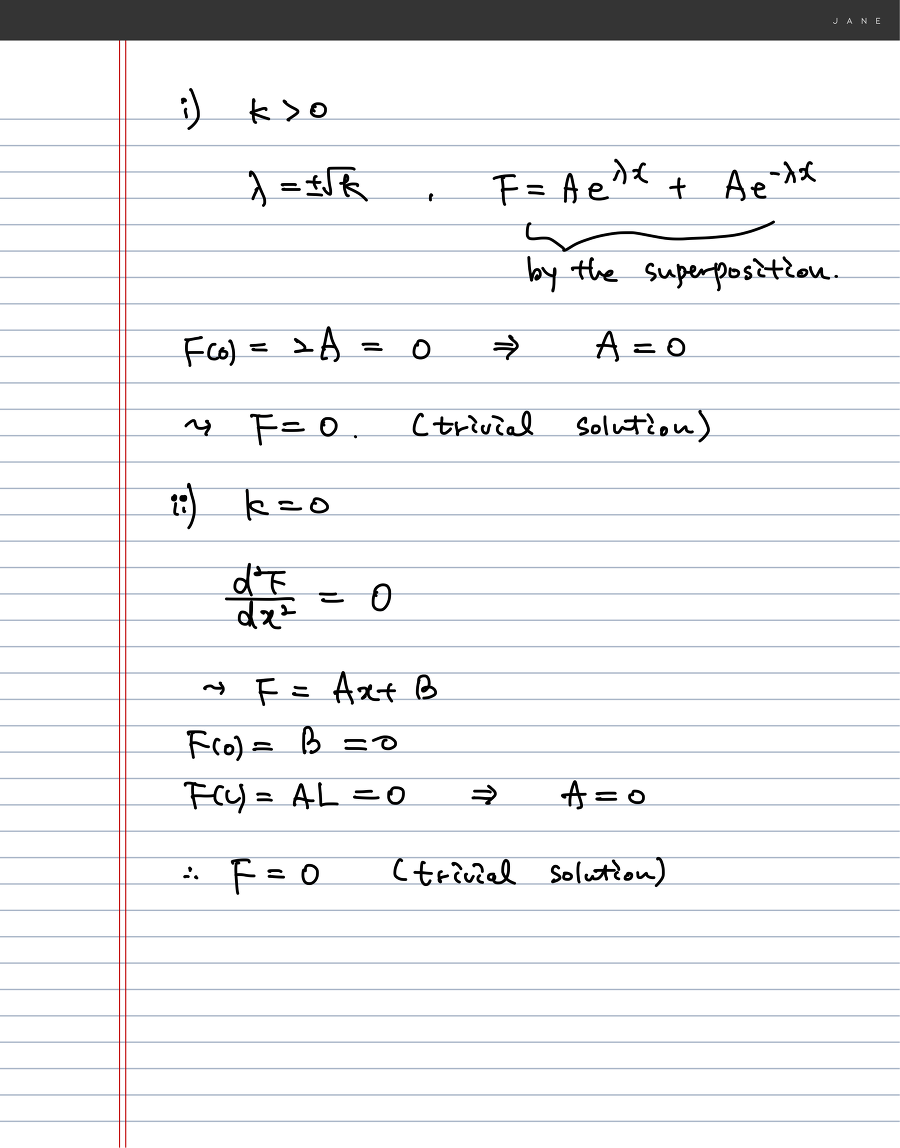 JANE
i) k > 0
λ = ±√k , F = Ae^{λx} + Ae^{-λx}
by the superposition.
F(0) = 2A = 0 ⇒ A = 0
⇝ F = 0. (trivial solution)
ii) k = 0
d²F/dx² = 0
⇝ F = Ax + B
F(0) = B = 0
F(L) = AL = 0 ⇒ A = 0
∴ F = 0 (trivial solution)